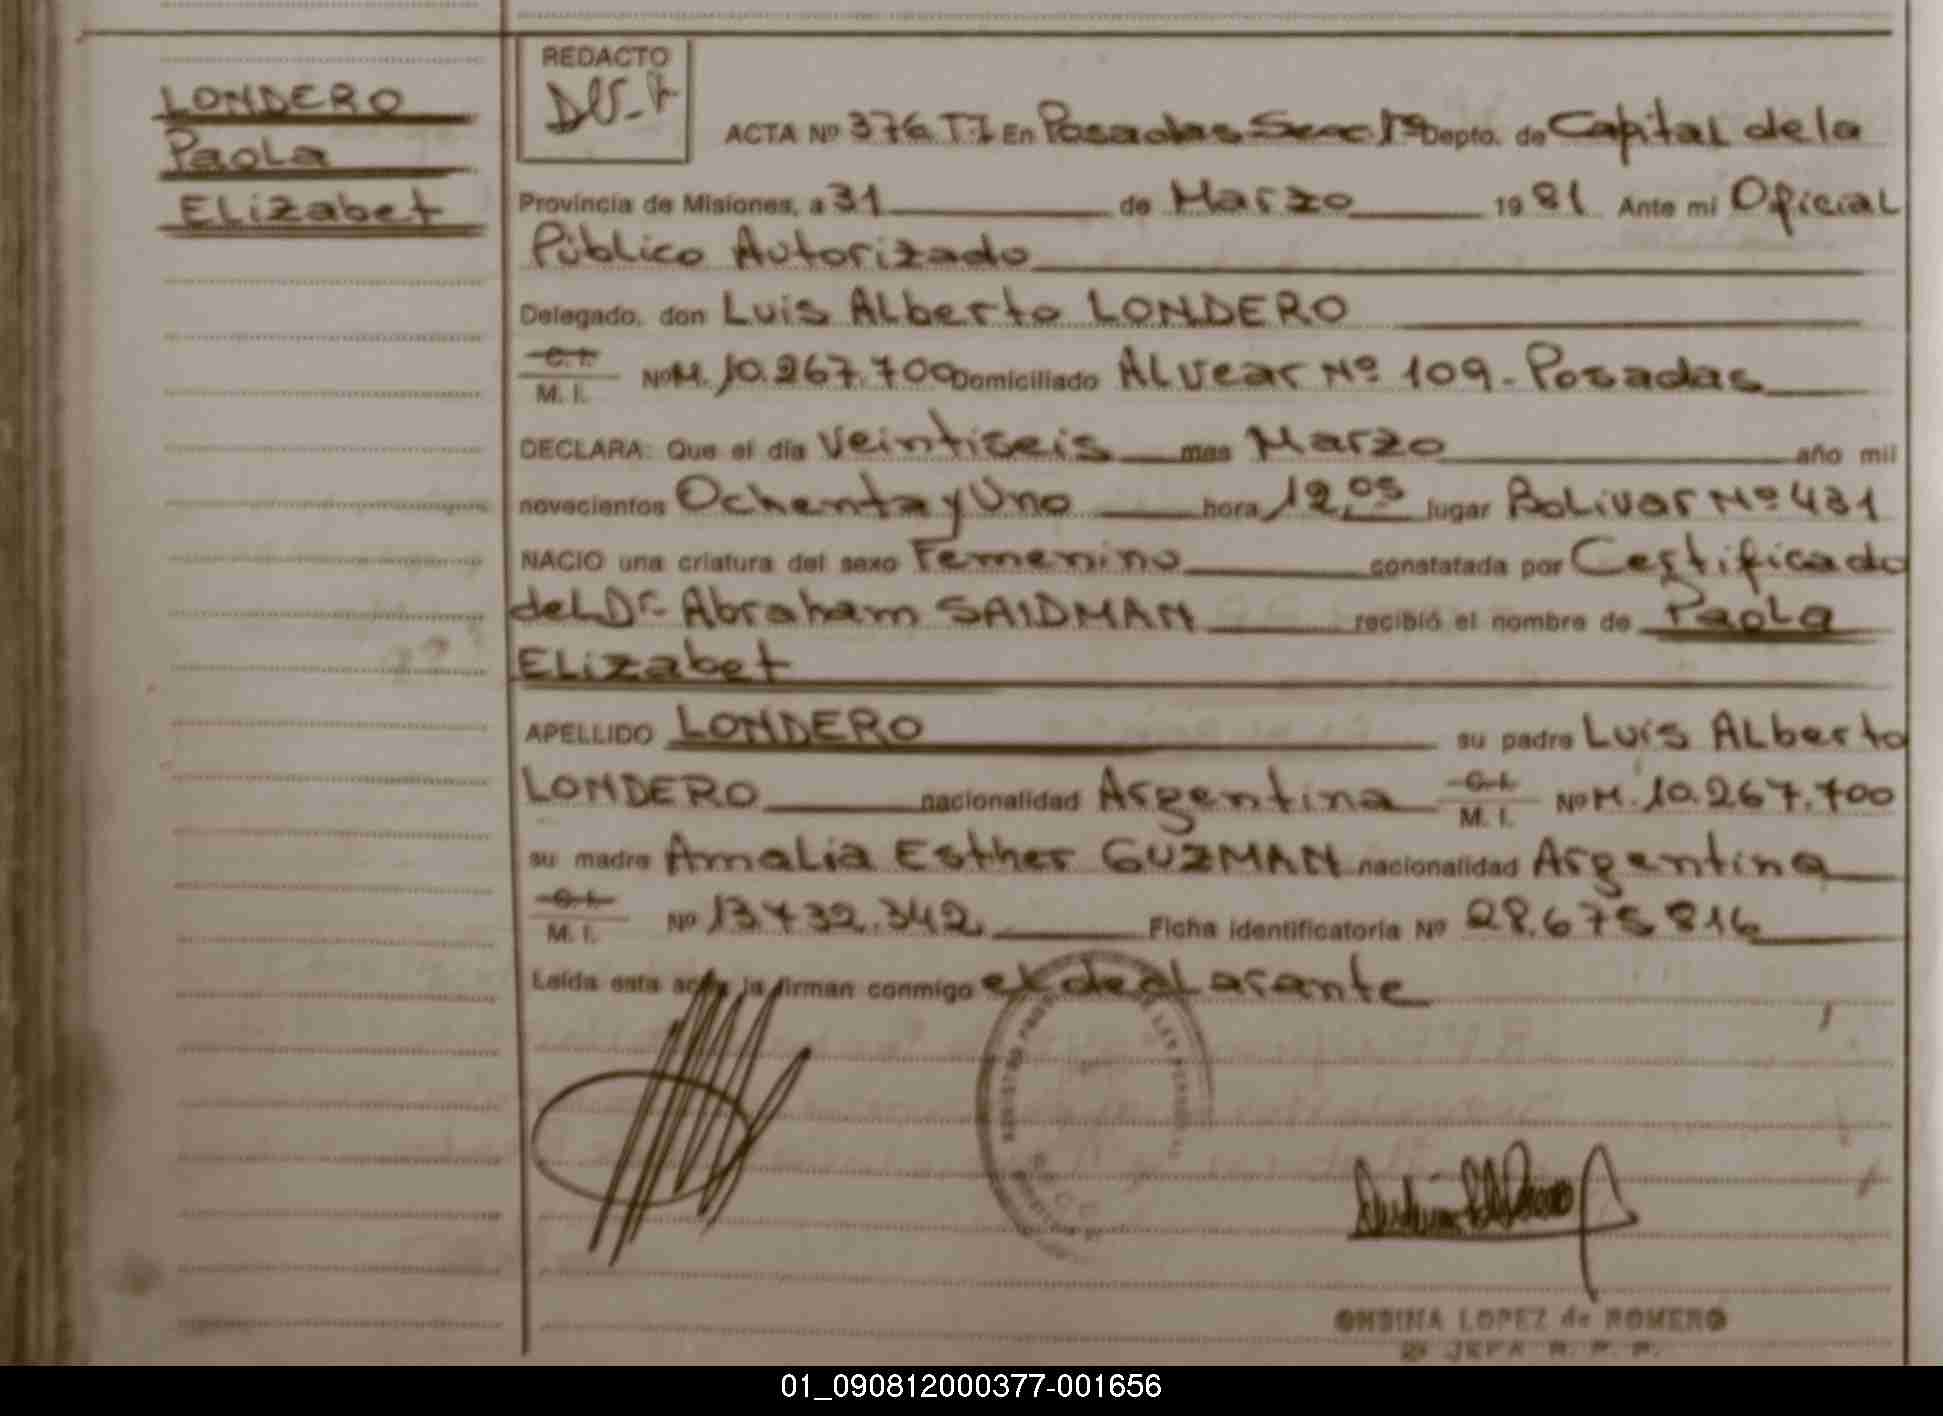 LONDERO
Paola
Elizabet
REDACTO
ACTA Nº 376.T.I En Posadas Secc 1ª Depto. de Capital de la
Provincia de Misiones, a 31 de Marzo 1981 Ante mi Oficial
Público Autorizado
Delegado, don Luis Alberto LONDERO
C. I.
M. I. Nº M. 10.267.700 Domiciliado Alvear Nº 109 - Posadas
DECLARA: Que el día Veintiseis mes Marzo año mil
novecientos Ochenta y Uno hora 12,05 lugar Bolivar Nº 431
NACIO una criatura del sexo Femenino constatada por Certificado
del Dr. Abraham SAIDMAN recibió el nombre de Paola
Elizabet
APELLIDO LONDERO su padre Luis Alberto
LONDERO nacionalidad Argentina C. I.
M. I. Nº M. 10.267.700
su madre Amalia Esther GUZMAN nacionalidad Argentina
C. I.
M. I. Nº 13.732.342. Ficha identificatoria Nº 28.675.816
Leída esta acta la firman conmigo el declarante
ONDINA LOPEZ de ROMERO
01_090812000377-001656